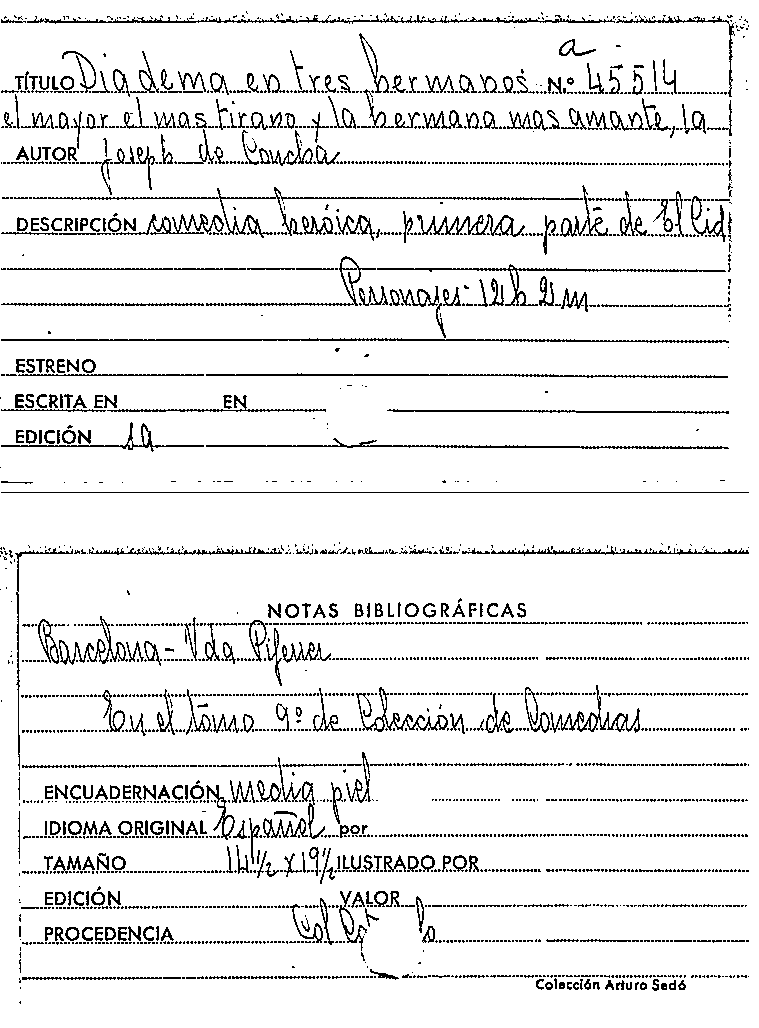 a
TÍTULO Diadema en tres hermanos N.º 45514
el mayor el mas tirano y la hermana mas amante, la
AUTOR Joseph de Concha
DESCRIPCIÓN comedia heróica, primera parte de El Cid
Personajes - 12 h 2 m
ESTRENO
ESCRITA EN EN
EDICIÓN sa
NOTAS BIBLIOGRÁFICAS
Barcelona - Vda Piferrer
En el tomo 9º de Colección de Comedias
ENCUADERNACIÓN media piel
IDIOMA ORIGINAL Español por
TAMAÑO 14½ x 19½ ILUSTRADO POR
EDICIÓN VALOR
PROCEDENCIA Col
Colección Arturo Sedó